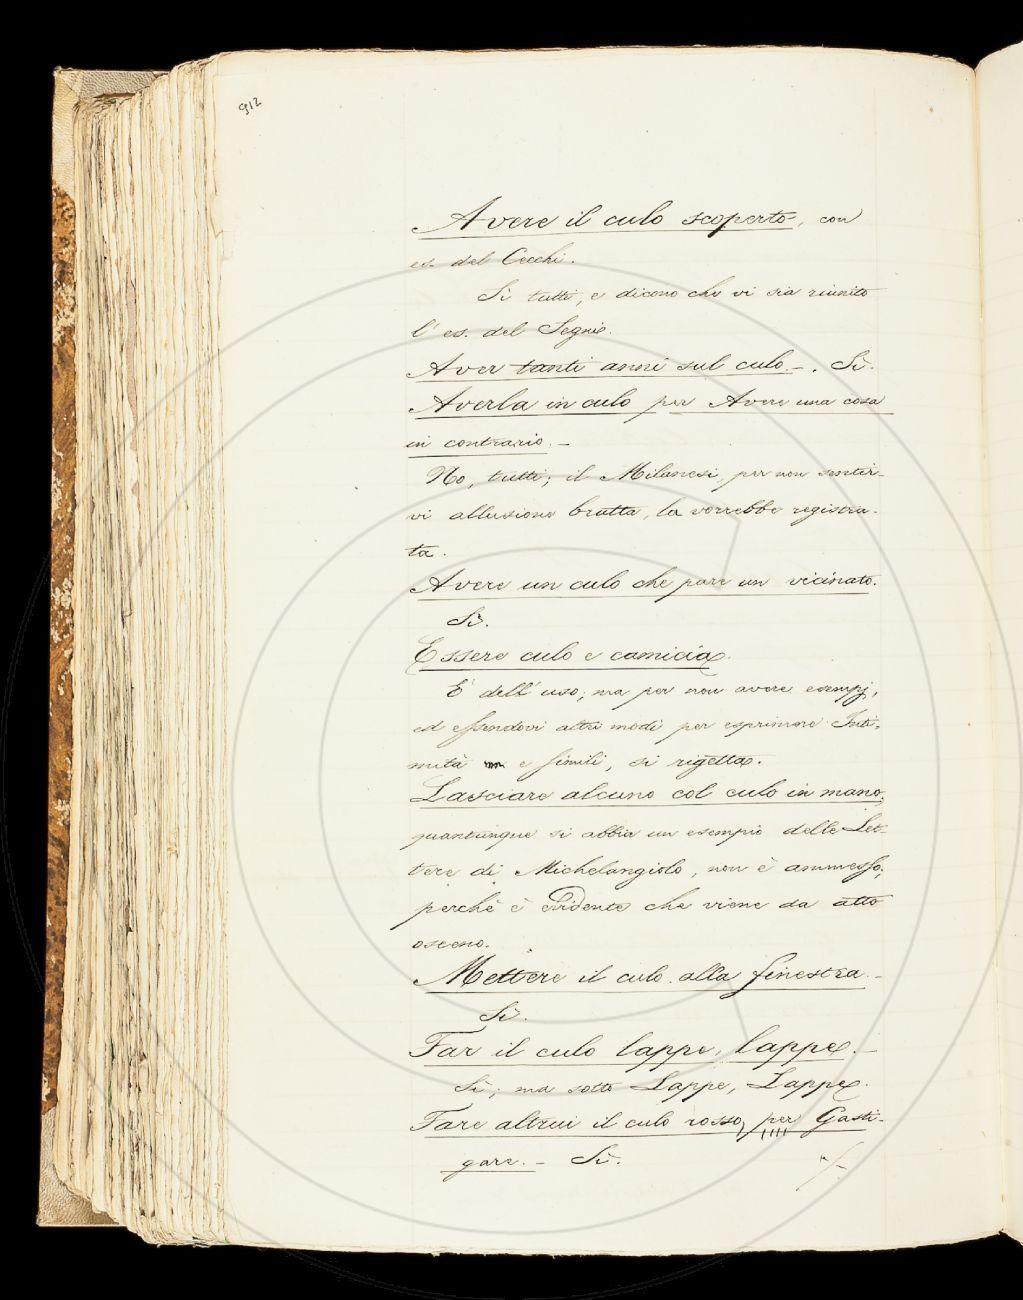 912
Avere il culo scoperto, con
es. del Cecchi.
Sì tutti, e dicono che vi sia riunito
l'es. del Segni.
Aver tanti anni sul culo. - . Sì.
Averla in culo per Avere una cosa
in contrario. -
No, tutti; il Milanesi, per non sentir-
vi allusione brutta, la vorrebbe registra-
ta.
Avere un culo che pare un vicinato.
Sì.
Essere culo e camicia.
E' dell' uso; ma per non avere esempj,
ed essendovi altri modi per esprimere Inti-
mità e simili, si rigetta.
Lasciare alcuno col culo in mano,
quantunque si abbia un esempio delle Let-
tere di Michelangiolo, non è ammesso,
perchè è evidente che viene da atto
osceno.
Mettere il culo alla finestra. -
Sì.
Far il culo lappe, lappe. -
Sì; ma sotto Lappe, Lappe.
Fare altrui il culo rosso, per Gasti-
gare. - Sì.